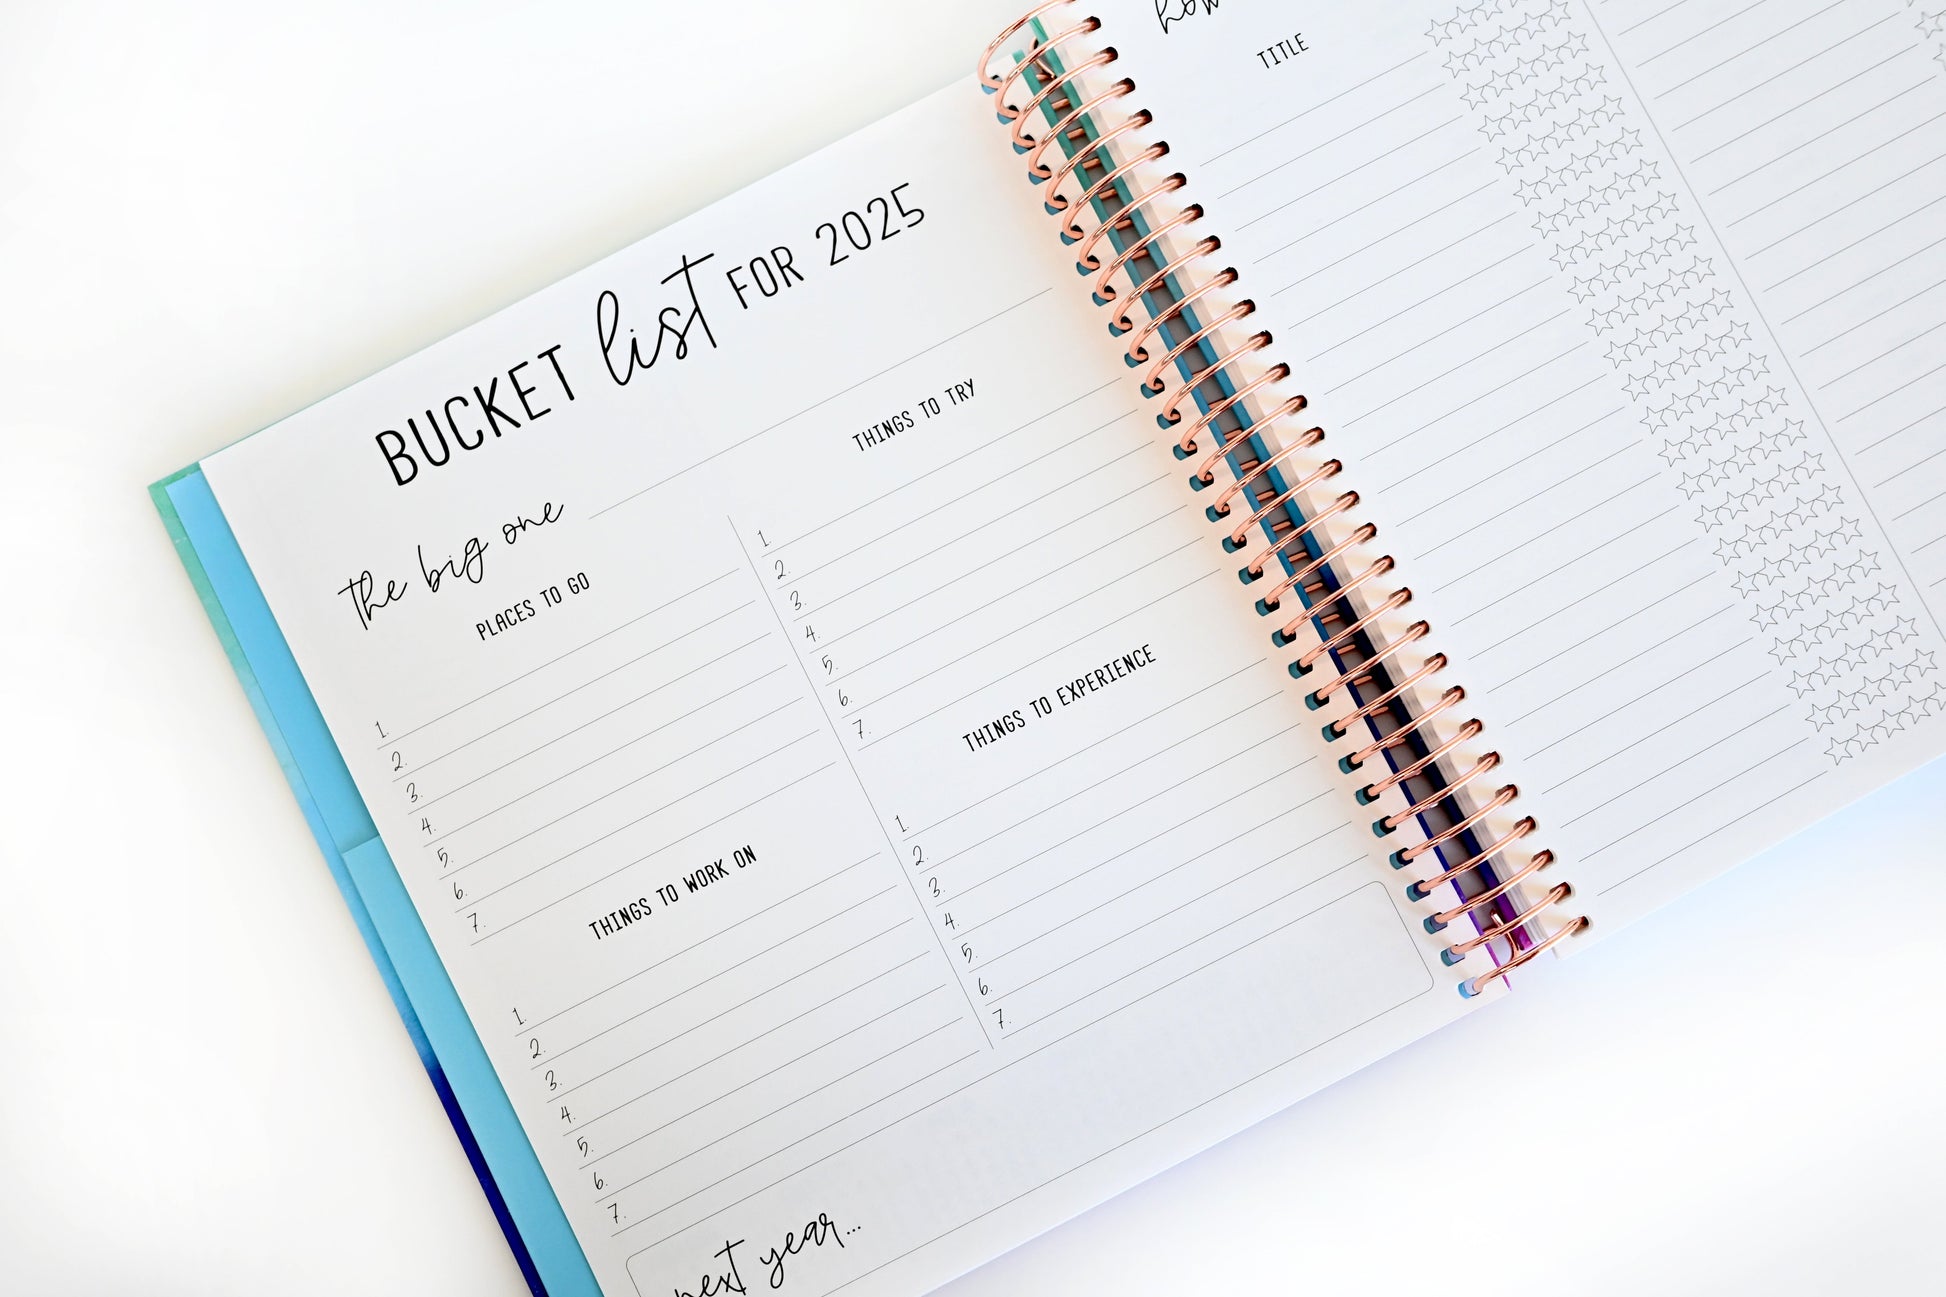 BUCKET list FOR 2025
the big one
PLACES TO GO
1.
2.
3.
4.
5.
6.
7.
THINGS TO WORK ON
1.
2.
3.
4.
5.
6.
7.
THINGS TO TRY
1.
2.
3.
4.
5.
6.
7.
THINGS TO EXPERIENCE
1.
2.
3.
4.
5.
6.
7.
next year...
TITLE